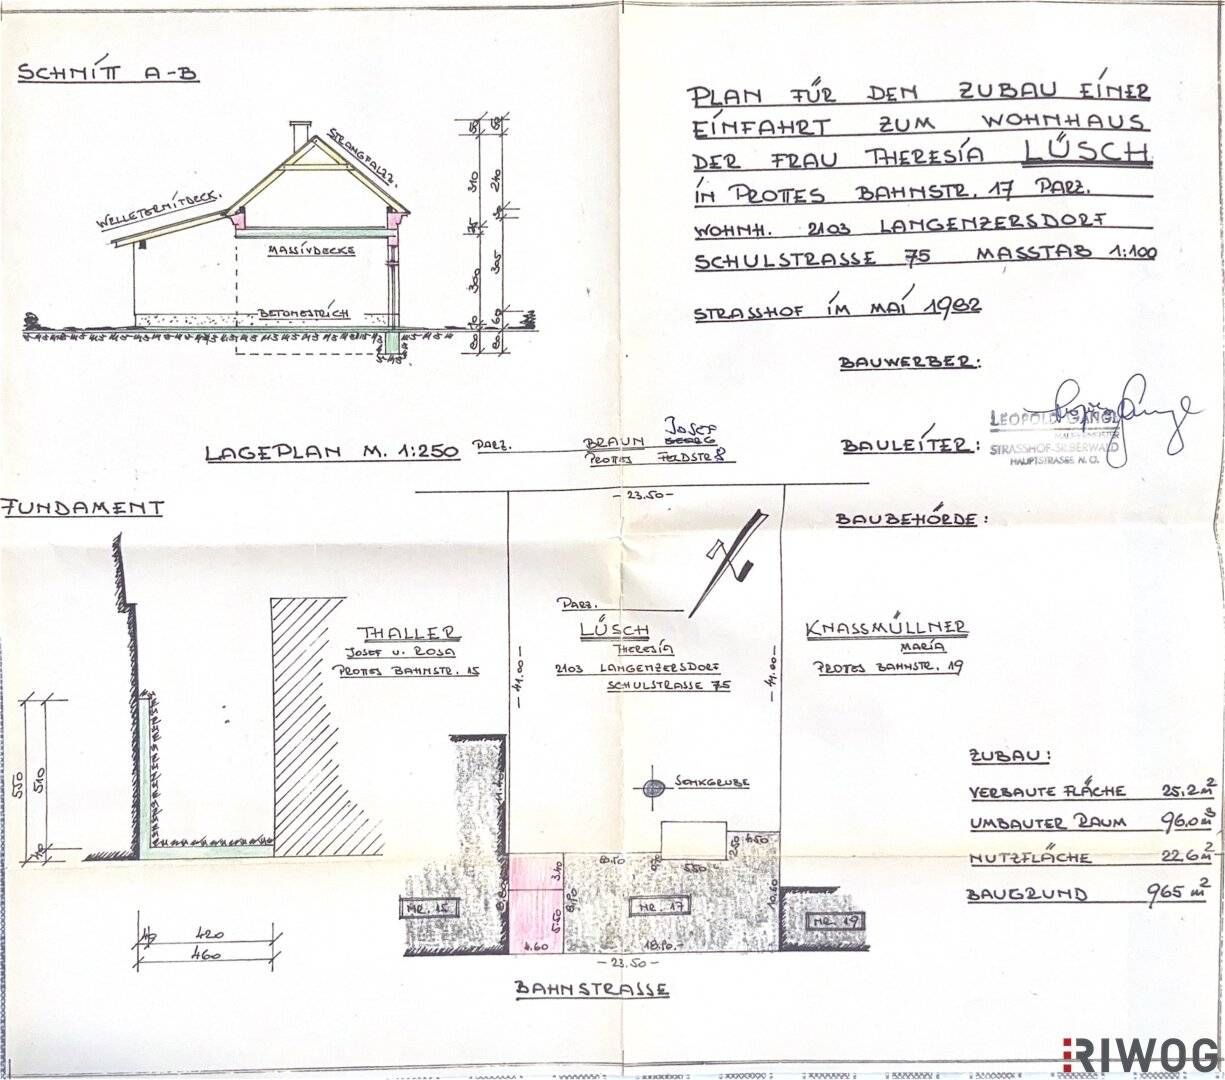 SCHNITT A-B
STRANGFALZZ.
WELLETERNITDECK.
MASSIVDECKE
BETONESTRICH
PLAN FÜR DEN ZUBAU EINER
EINFAHRT ZUM WOHNHAUS
DER FRAU THERESIA LÜSCH
IN PROTTES BAHNSTR. 17 PARZ.
WOHNH. 2103 LANGENZERSDORF
SCHULSTRASSE 75 MASSTAB 1:100
STRASSHOF IM MAI 1982
BAUWERBER:
BAULEITER:
LEOPOLD GANGL
STRASSHOF-SILBERWALD
HAUPTSTRASSE N.Ö.
BAUBEHÖRDE:
LAGEPLAN M. 1:250
PARZ. BRAUN GEORG JOSEF
PROTTES FELDSTR 8
FUNDAMENT
-23.50-
PARZ.
THALLER
JOSEF U. ROSA
PROTTES BAHNSTR. 15
LÜSCH
THERESIA
2103 LANGENZERSDORF
SCHULSTRASSE 75
KNASSMÜLLNER
MARIA
PROTTES BAHNSTR. 19
-41.00-
-41.00-
550
510
40
SENKGRUBE
ZUBAU:
VERBAUTE FLÄCHE 25.2 m²
UMBAUTER RAUM 96.0 m³
NUTZFLÄCHE 22.6 m²
BAUGRUND 965 m²
NR. 15
NR. 17
NR. 19
3.40
5.50
4.60
8.90
18.90.-
10.60
5.50
2.50
4.50
-23.50-
BAHNSTRASSE
40
420
460
RIWOG